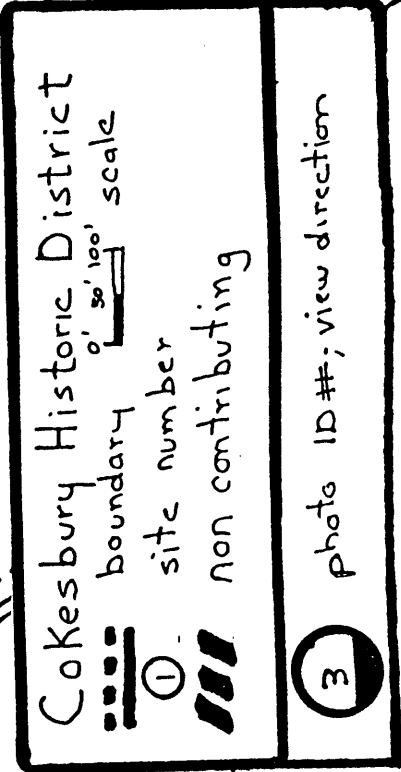 Cokesbury Historic District
boundary 0' 50' 100' scale
1 site number
non contributing
3 photo ID#; view direction